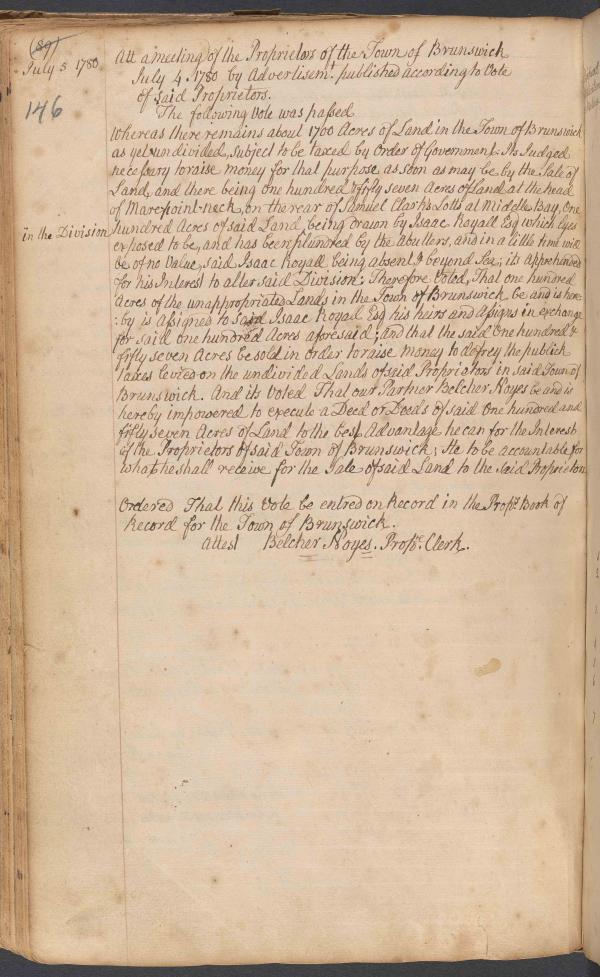 (89)
July 5 1780
146
Att a meeting of the Proprietors of the Town of Brunswick
July 4. 1780 by Advertisemt. published according to Vote
of said Proprietors.
The following Vote was passed
Whereas there remains about 1700 Acres of Land in the Town of Brunswick
as yet undivided, subject to be taxed by Order of Government. Its Judged
necessary to raise money for that purpose as soon as may be by the Sale of
Land, and there being one hundred & fifty seven Acres of Land at the head
of Marepoint-neck, on the rear of Samuel Clark's Lotts at Middle Bay, One
in the Division
hundred Acres of said Land being drawn by Isaac Royall Esq which lyes
exposed to be, and has been plundred by the Abutters, and in a little time will
be of no Value, said Isaac Royall being absent & beyond Sea; its apprehended
for his Interest to alter said Division: Therefore Voted, That one hundred
Acres of the unappropriated Lands in the Town of Brunswick be and is here-
:by is Assigned to said Isaac Royall Esq his heirs and Assigns in exchange
for said one hundred Acres aforesaid; and that the said One hundred &
fifty seven Acres be sold in order to raise Money to defrey the publick
Taxes levied on the undivided Lands of said Proprietors in said Town of
Brunswick. And its Voted That our Partner Belcher Noyes be and is
hereby impowered to execute a Deed or Deeds of said One hundred and
fifty seven Acres of Land to the best Advantage he can for the Interest
of the Proprietors of said Town of Brunswick; He to be accountable for
what he shall receive for the Sale of said Land to the said Proprietors
Ordered That this Vote be entred on Record in the Props. Book of
Record for the Town of Brunswick.
Attest Belcher Noyes. Prope. Clerk.